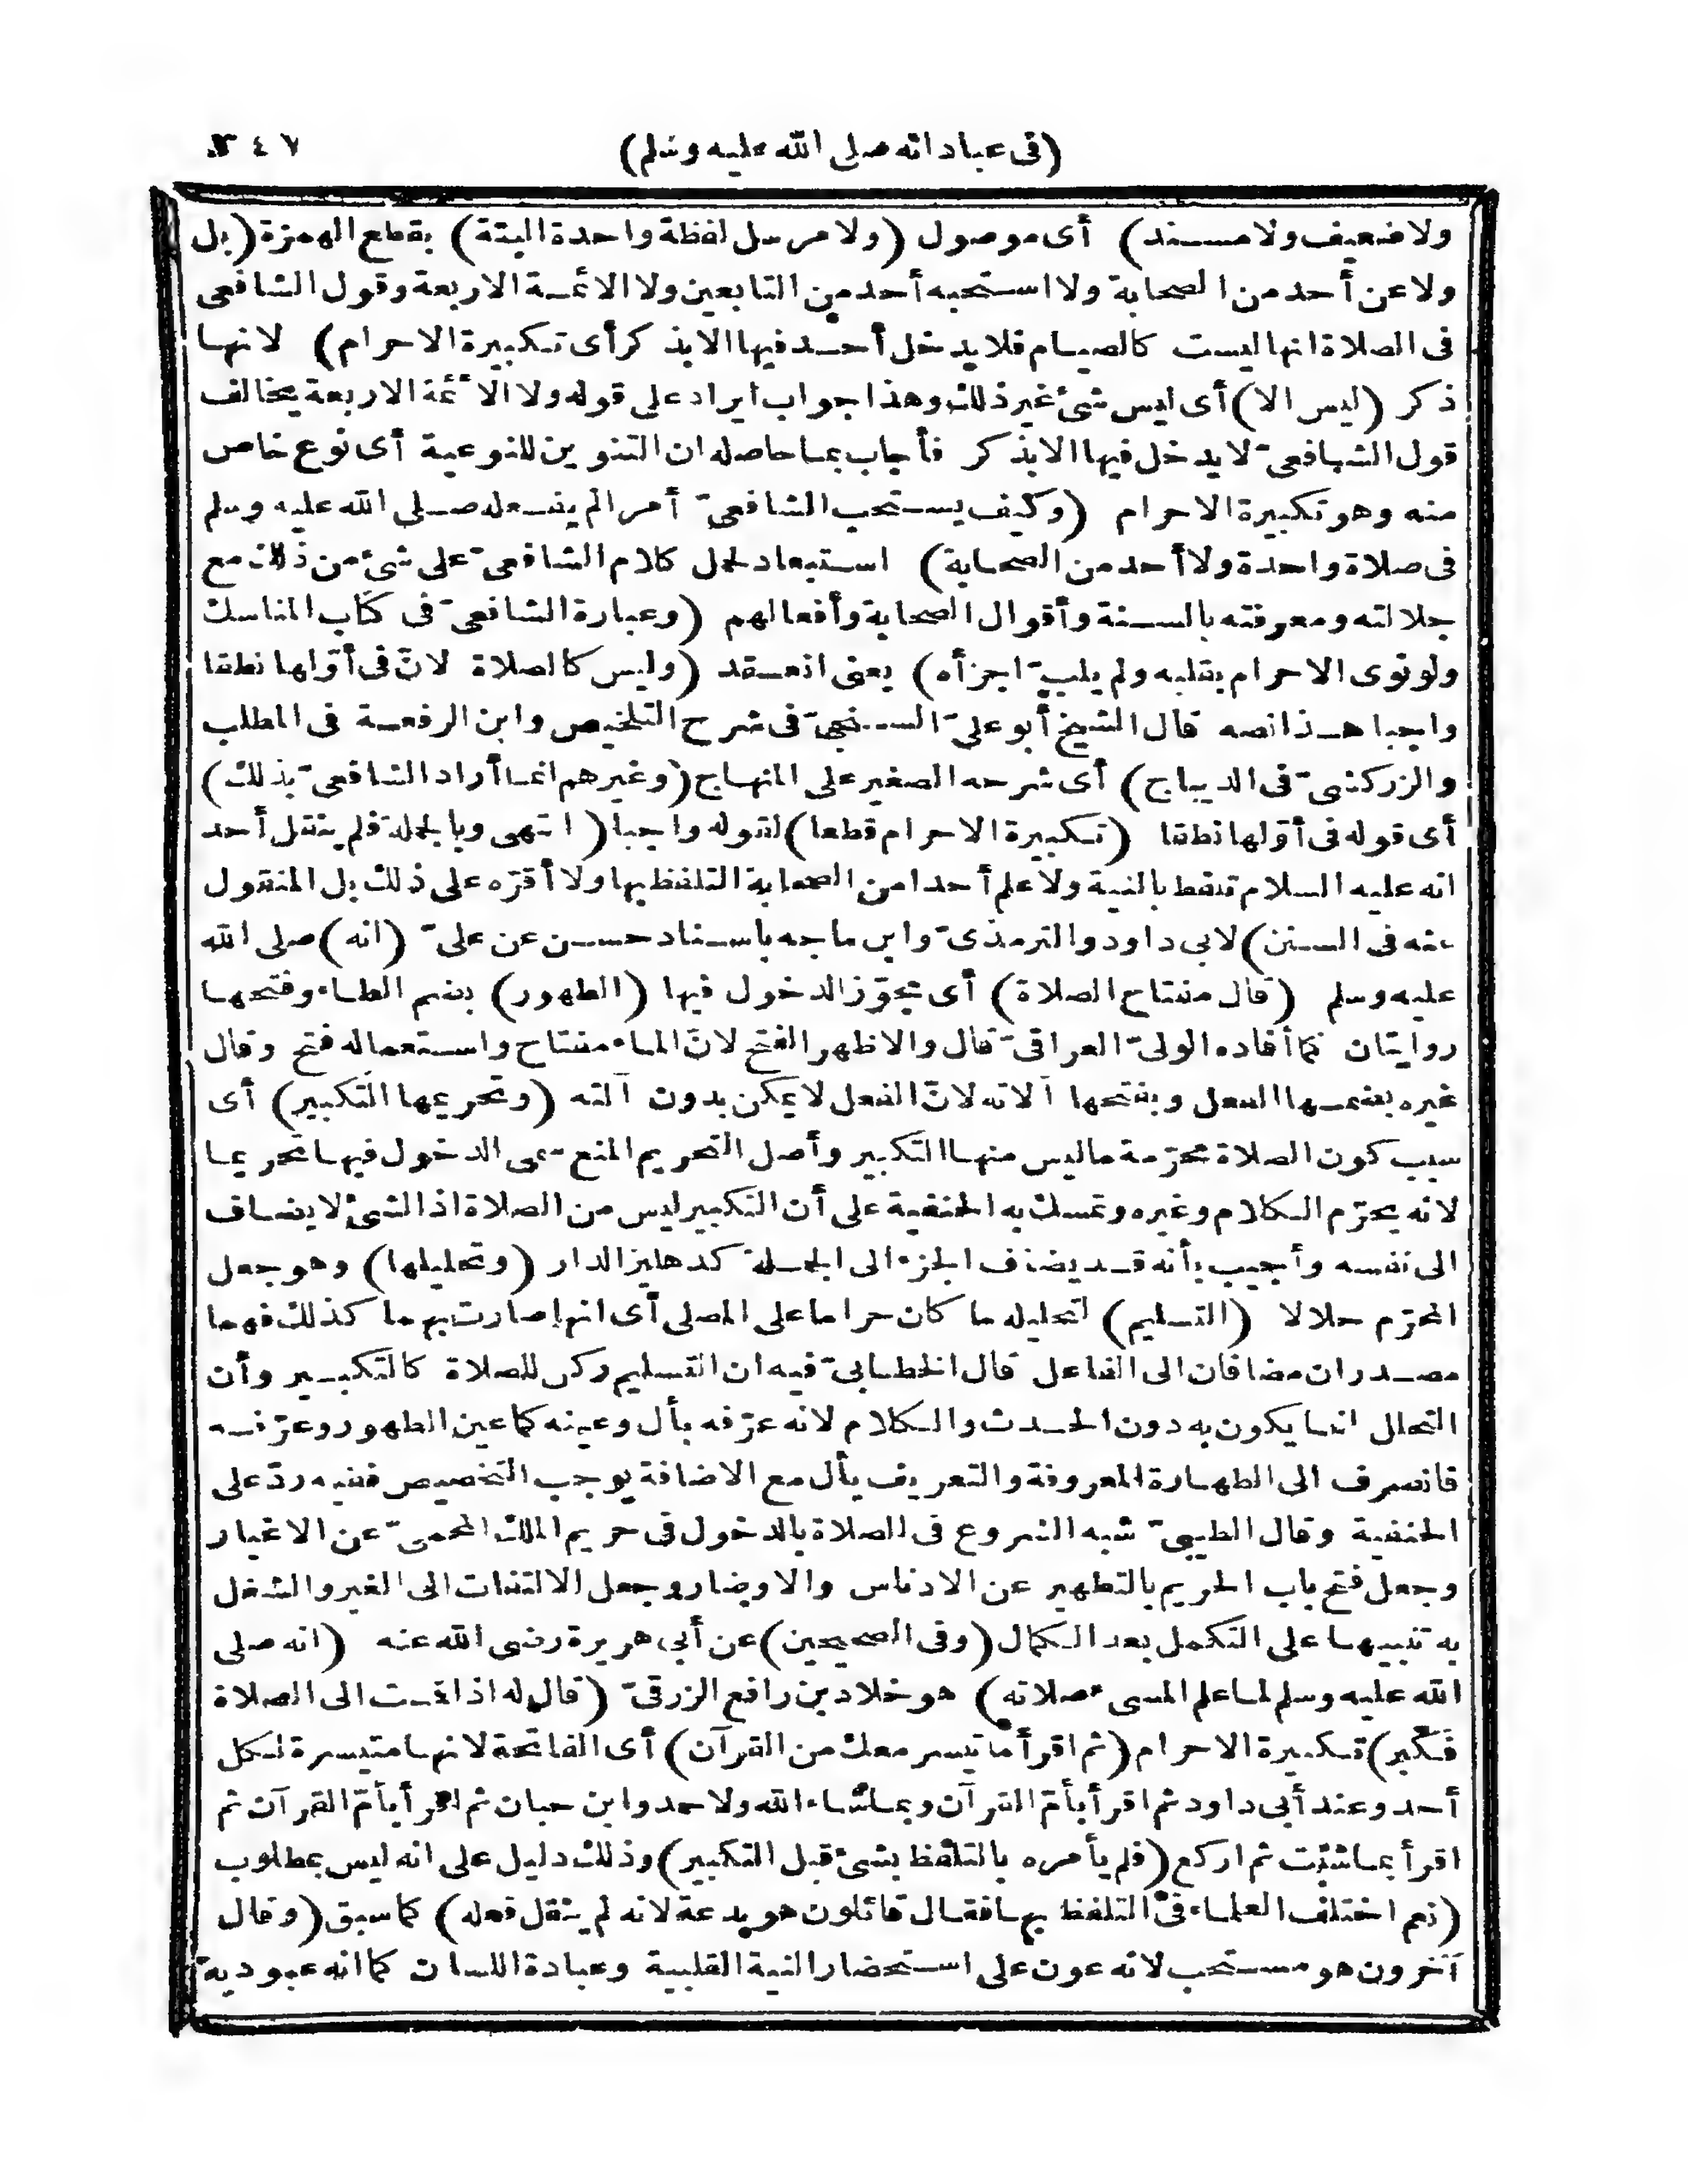 (فى عباداته صلى الله عليه وسلم) ٣٤٧
ولا ضعيف ولا مسند) أى موصول (ولا مرسل لفظة واحدة البتة) بقطع الهمزة (بل
ولا عن أحد من الصحابة ولا استحبه أحد من التابعين ولا الائمة الاربعة وقول الشافعى
فى الصلاة انها ليست كالصيام فلا يدخل أحد فيها الابذكر أى تكبيرة الاحرام) لانها
ذكر (ليس الا) أى ليس شئ غير ذلك وهذا جواب ايراد على قوله ولا الائمة الاربعة يخالف
قول الشافعىّ لا يدخل فيها الابذكر فأجاب بما حاصله ان التنوين للنوعية أى نوع خاص
منه وهو تكبيرة الاحرام (وكيف يستحب الشافعىّ أمرا لم يفعله صلى الله عليه وسلم
فى صلاة واحدة ولا أحد من الصحابة) استبعاد لحمل كلام الشافعىّ على شئ من ذلك مع
جلالته ومعرفته بالسنة وأقوال الصحابة وأفعالهم (وعبارة الشافعىّ فى كتاب المناسك
ولو نوى الاحرام بقلبه ولم يلبّ اجزأه) يعنى انعقد (وليس كالصلاة لانّ فى أوّلها نطقا
واجبا هذا نصه قال الشيخ أبو علىّ السنجىّ فى شرح التلخيص وابن الرفعة فى المطلب
والزركشىّ فى الديباج) أى شرحه الصغير على المنهاج (وغيرهم انما أراد الشافعىّ بذلك)
أى قوله فى أوّلها نطقا (تكبيرة الاحرام قطعا) لقوله واجبا (انتهى وبالجملة فلم ينقل أحد
انه عليه السلام تلفظ بالنية ولا علم أحدا من الصحابة التلفظ بها ولا أقرّه على ذلك بل المنقول
عنه فى السنن) لابى داود والترمذىّ وابن ماجه باسناد حسن عن علىّ (انه) صلى الله
عليه وسلم (قال مفتاح الصلاة) أى مجوّز الدخول فيها (الطهور) بضم الطاء وفتحها
روايتان كما أفاده الولىّ العراقىّ قال والاظهر الفتح لانّ الماء مفتاح واستعماله فتح وقال
غيره بضمها الفعل وبفتحها آلاته لانّ الفعل لا يمكن بدون آلته (وتحريمها التكبير) أى
سبب كون الصلاة محرّمة ما ليس منها التكبير وأصل التحريم المنع سمى الدخول فيها تحريما
لانه يحرّم الكلام وغيره وتمسك به الحنفية على أن التكبير ليس من الصلاة اذ الشئ لا يضاف
الى نفسه وأجيب بأنه قد يضاف الجزء الى الجملة كدهليز الدار (وتحليلها) وهو جعل
المحرّم حلالا (التسليم) لتحليله ما كان حراما على المصلى أى انها صارت بهما كذلك فهما
مصدران مضافان الى الفاعل قال الخطابىّ فيه ان التسليم ركن للصلاة كالتكبير وأن
التحلل انما يكون به دون الحدث والكلام لانه عرّفه بأل وعينه كما عين الطهور وعرّفه
فانصرف الى الطهارة المعروفة والتعريف بأل مع الاضافة يوجب التخصيص ففيه ردّ على
الحنفية وقال الطيبىّ شبه الشروع فى الصلاة بالدخول فى حريم الملك المحمىّ عن الاغيار
وجعل فتح باب الحريم بالتطهير عن الادناس والاوضار وجعل الالتفات الى الغير والشغل
به تنبيها على التكمل بعد الكمال (وفى الصحيحين) عن أبى هريرة رضى الله عنه (انه صلى
الله عليه وسلم لما علم المسىء صلاته) هو خلاد بن رافع الزرقىّ (قال له اذا قمت الى الصلاة
فكبر) تكبيرة الاحرام (ثم اقرأ ما تيسر معك من القرآن) أى الفاتحة لانها متيسرة لكل
أحد وعند أبى داود ثم اقرأ بأمّ القرآن وبما شاء الله ولاحمد وابن حبان ثم اقرأ بأمّ القرآن ثم
اقرأ بما شئت ثم اركع (فلم يأمره بالتلفظ بشئ قبل التكبير) وذلك دليل على انه ليس بمطلوب
(نعم اختلف العلماء فى التلفظ بها فقال قائلون هو بدعة لانه لم ينقل فعله) كما سبق (وقال
آخرون هو مستحب لانه عون على استحضار النية القلبية وعبادة اللسان كما انه عبودية